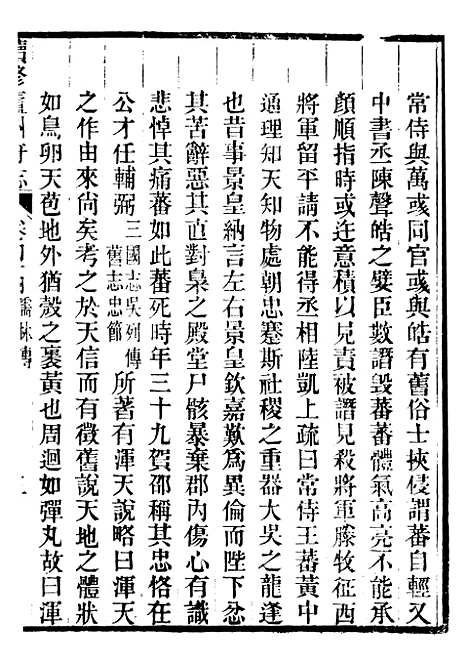 常侍與萬彧同官彧與皓有舊俗士挾侵謂蕃自輕又
中書丞陳聲皓之嬖臣數譖毀蕃蕃體氣高亮不能承
顏順指時或迕意積以見責被譖見殺將軍滕牧征西
將軍留平請不能得丞相陸凱上疏曰常侍王蕃黃中
通理知天知物處朝忠蹇斯社稷之重器大吳之龍逢
也昔事景皇納言左右景皇欽嘉歎爲異倫而陛下忿
其苦辭惡其直對梟之殿堂尸骸暴棄郡內傷心有識
悲悼其痛蕃如此蕃死時年三十九賀邵稱其忠恪在
公才任輔弼三國志吳列傳舊志忠節所著有渾天說略曰渾天
之作由來尚矣考之於天信而有徵舊說天地之體狀
如鳥卵天苞地外猶殼之裹黃也周迴如彈丸故曰渾
續修廬州府志 卷四十四 儒林傳 二